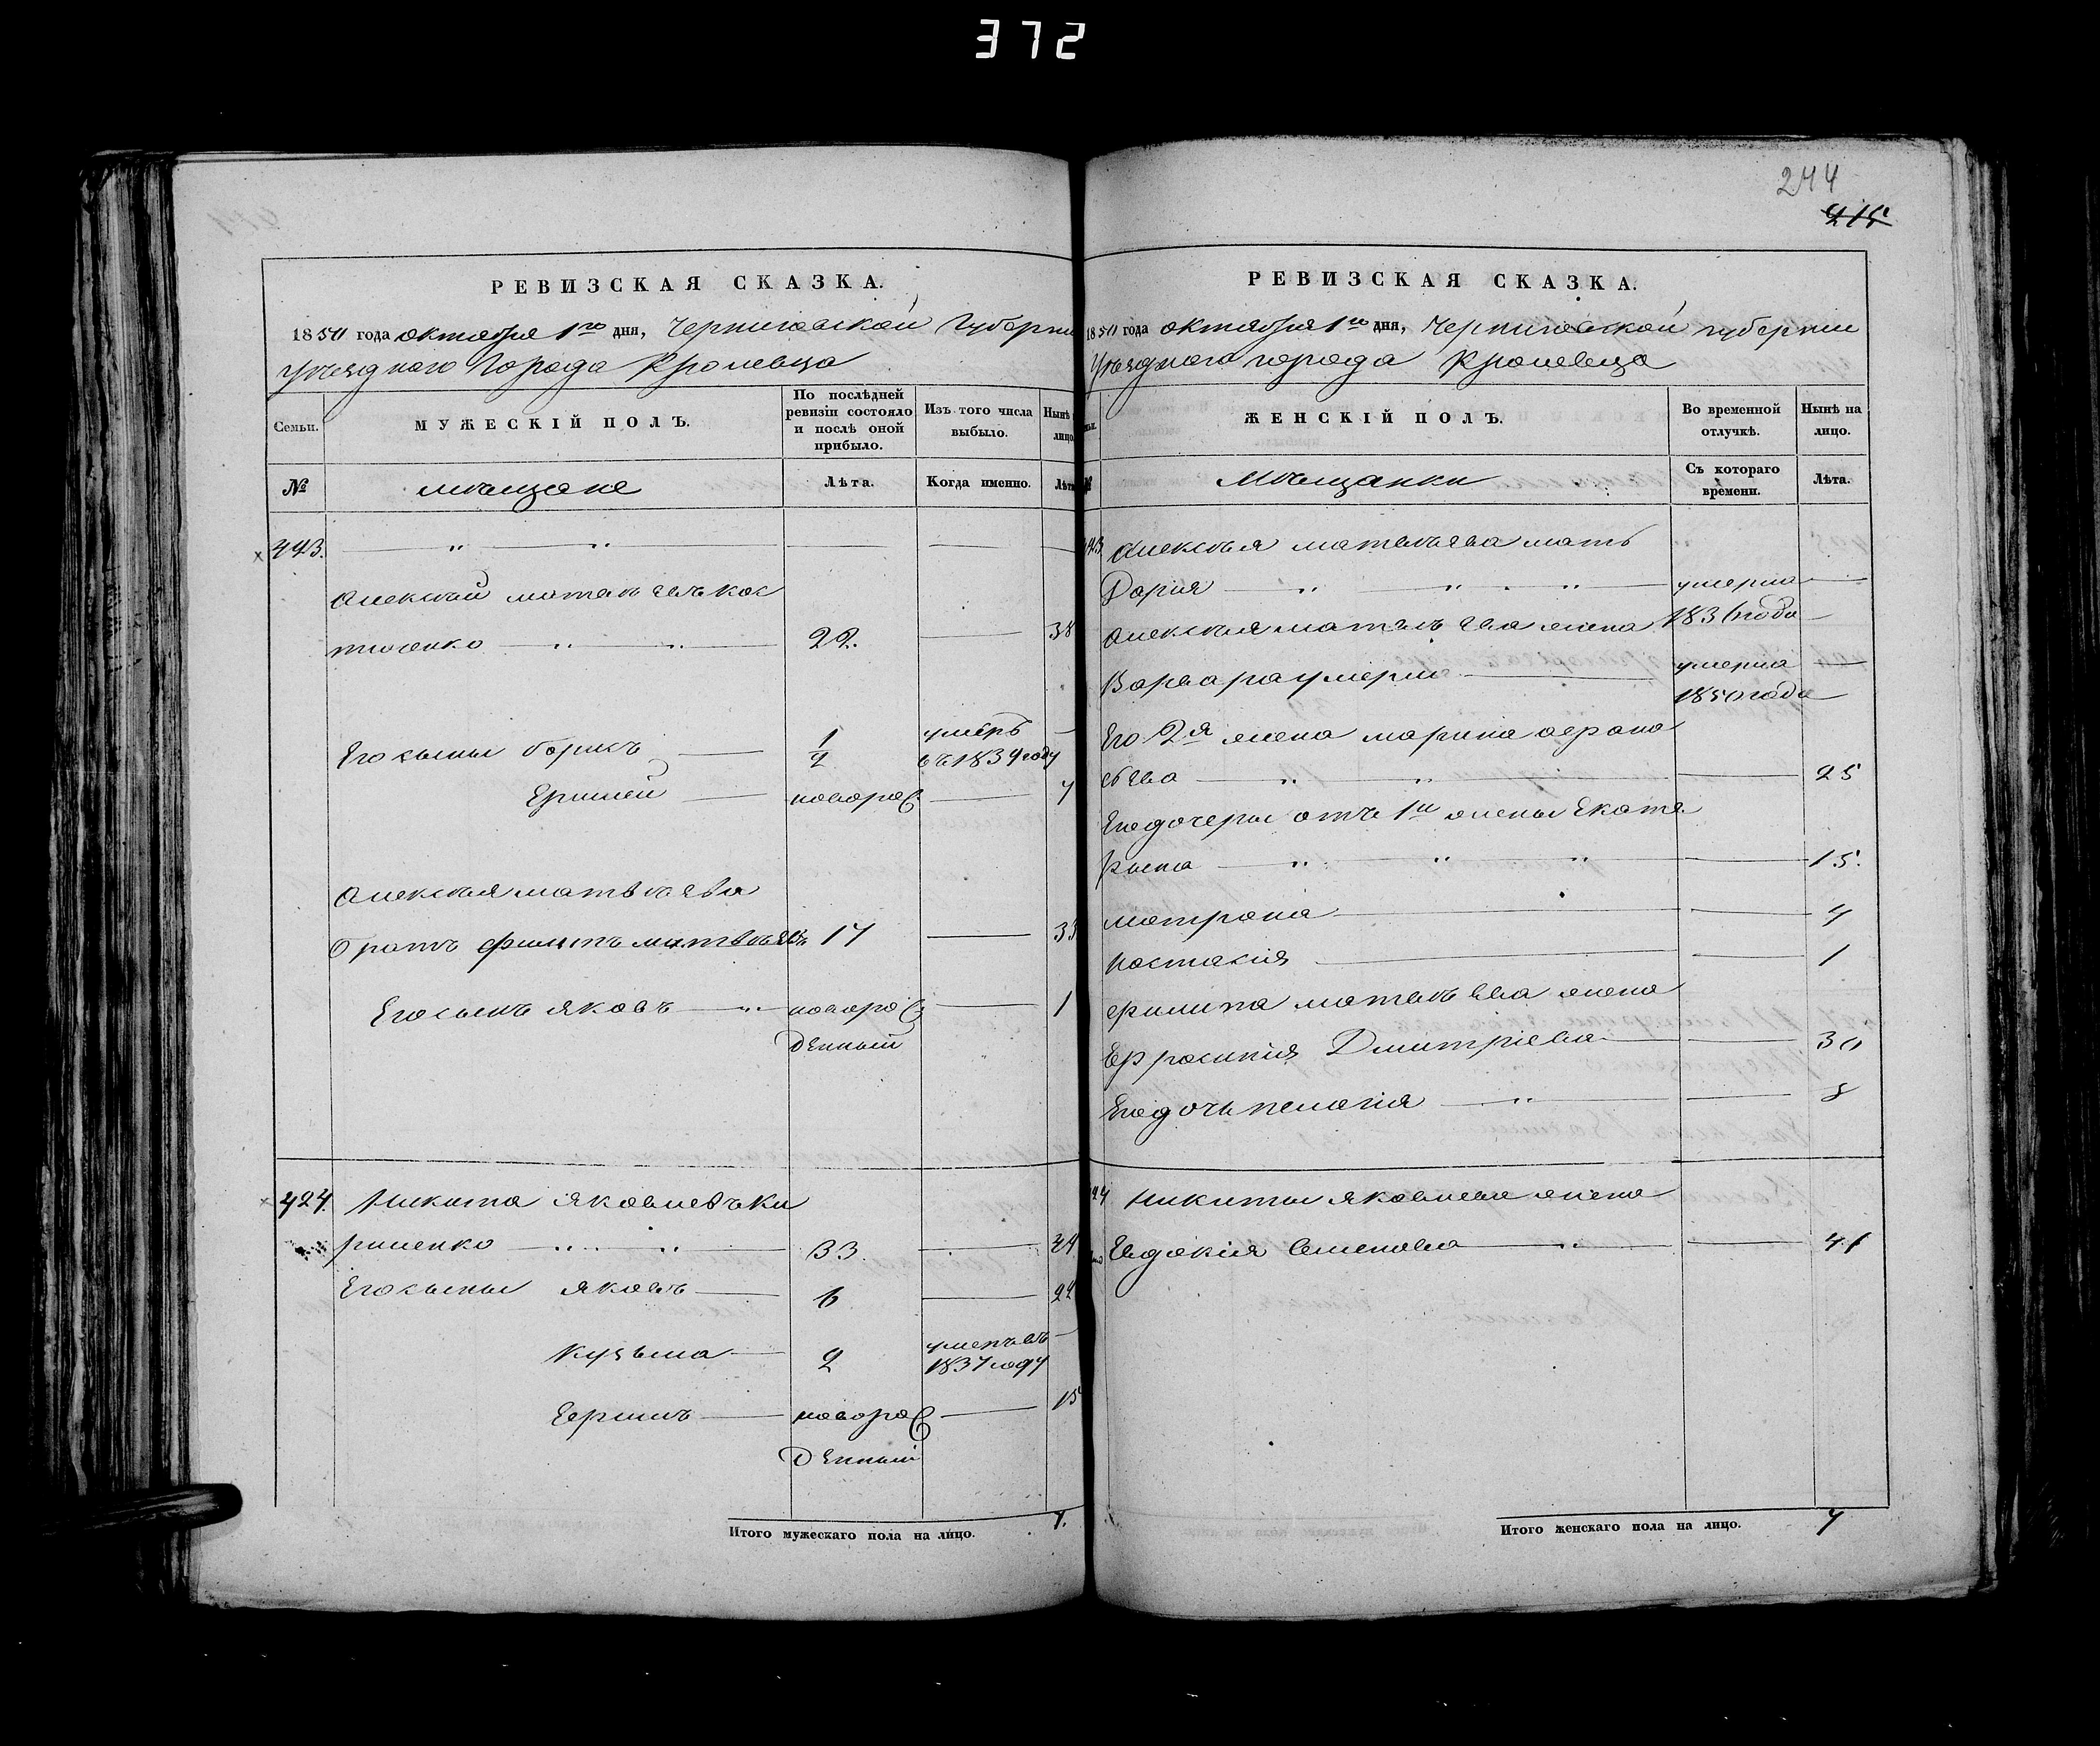 372
244
215
РЕВИЗСКАЯ СКАЗКА.
1850 года октября 1го дня, Черниговской Губерни
уѣзднаго Города Кролевца
Семьи.
МУЖЕСКІЙ ПОЛЪ.
По послѣдней ревизіи состояло и послѣ оной прибыло.
Изъ того числа выбыло.
Нынѣ лицо
№
мѣщане
Лѣта.
Когда именно.
Лѣта
Алексѣй матвѣевъ кос
тюченко 22. 38
Его сыны борисъ 1/2 умеръ
въ 1839 году
Ермолей новорож 7
Алексѣя матвѣева
братъ филипъ матвѣевъ 17 33
Его сынъ яковъ новорож 1
денный
424. Никита яковлевъ Ки
риленко 33. 49
Его сыны яковъ 6 22
кузьма 2 умеръ въ
1837 году
Ефимъ новорож 15
денный
Итого мужескаго пола на лицо. 7.
РЕВИЗСКАЯ СКАЗКА.
1850 года октября 1го дня, Черниговской губерніи
Уѣзднаго города Кролевца
ЖЕНСКІЙ ПОЛЪ.
Во временной отлучкѣ.
Нынѣ на лицо.
№
Мѣщанки
Съ котораго времени.
Лѣта.
Алексѣя матвѣева мать
Дарія умерла
Алексѣя матвѣева жена 1836 года
Варвара умерла умерла
1850 года
Его 2я жена марина афана
сьева 25
Его дочеры отъ 1й жены Екате
рина 15.
матрона 4
настасія 1
филипа матвѣева жена
Ефросинія Дмитріева 30
Его дочь пелагія 8
Никиты яковлева жена
Евдокія Семенова 41
Итого женскаго пола на лицо. 7